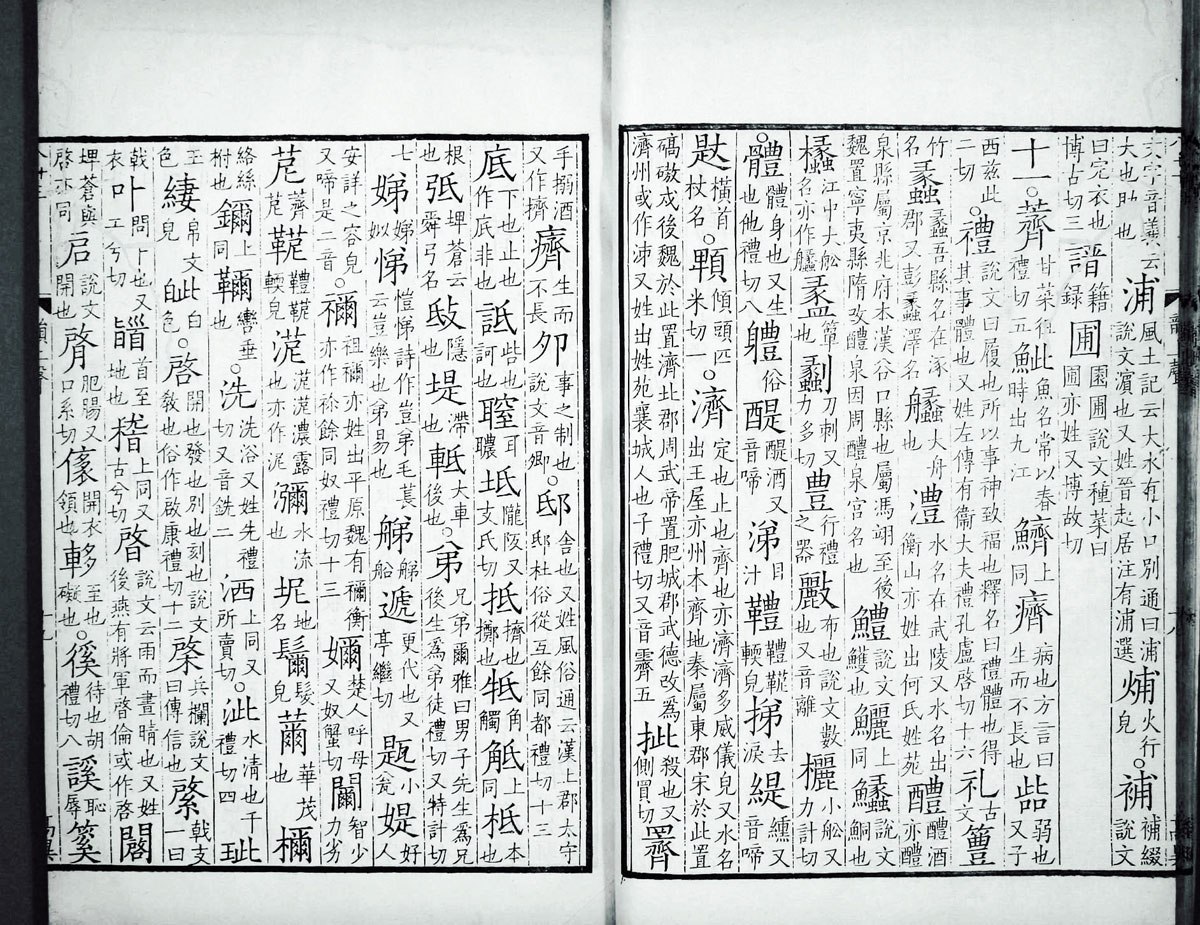 文字音義云大也助也浦風土記云大水有小口別通曰浦說文濱也又姓晉起居注有浦選烳火行皃○補補綴說文
曰完衣也博古切三譜籍録圃園圃說文種菜曰圃亦姓又博故切
十一○薺甘菜徂禮切五鮆魚名常以春時出九江鱭上同癠病也方言曰生而不長也啙弱也又子
西兹此二切○禮說文曰履也所以事神致福也釋名曰禮體也得其事體也又姓左傳有衞大夫禮孔盧啓切十六礼古文𥶓
竹名蠡蠡吾縣名在涿郡又彭蠡澤名𦪾大舟也澧水名在武陵又水名出衡山亦姓出何氏姓苑醴醴酒亦醴
泉縣屬京兆府本漢谷口縣也屬馮翊至後魏置寧夷縣隋改醴泉因周醴泉宮名也鱧說文鱯也鱺上同𩽵說文鮦也
欚江中大舩名亦作𦪾盠簞也劙刀刺又力多切豊行禮之器㱀布也說文數也又音離欐小舩又力計切
○體身也又生也他禮切八軆俗醍醍酒又音啼涕目汁䪆䪆䩚輭皃挮去淚緹纁又音啼
䟗橫首杖名○䫌傾頭匹米切一○濟定也止也齊也亦濟濟多威儀皃又水名出王屋亦州本齊地秦屬東郡宋於此置
碻磝戍後魏於此置濟北郡周武帝置肥城郡武德改為濟州或作泲又姓出姓苑襄城人也子禮切又音霽五批殺也又側買切𪗍
手搦酒又作擠癠生而不長夘事之制也說文音卿○邸舍也又姓風俗通云漢上郡太守邸杜俗從互餘同都禮切十三
底下也止也作底非也詆呰也訶也聜耳聜坻隴阪又支氏切抵擠也擲也牴角觸觝上同柢本
根也弤埤蒼云舜弓名㪆隱也堤滯也軧大車後也○弟兄弟爾雅曰男子先生爲兄後生爲弟徒禮切又特計切
七娣娣姒悌愷悌詩作豈弟毛萇云豈樂也弟易也䑯䑯船遞更代也又亭繼切㼵小瓮媞好人
安詳之容皃又啼是二音○禰祖禰亦姓出平原魏有禰衡亦作祢餘同奴禮切十三嬭楚人呼母又奴蟹切䦵智少力劣
苨薺苨䩚䪆䩚輭皃濃露也亦作泥瀰水流也坭地髮皃薾華茂也檷
絡絲柎也鑈上同轡垂也○洗洗浴又姓先禮切又音銑二洒上同又所賣切○泚水清也千禮切四玼
玉色緀帛文皃㿨此白色○啓開也發也別也刻也說文敎也俗作啟康禮切十二棨兵欄說文曰傳信也綮戟支一曰
戟衣卟問卜也又工兮切首至地也稽上同又古兮切晵說文云雨而晝晴也又姓後燕有將軍啓倫或作啓䦯
埤蒼與啓亦同启說文開也䏿肥腸又口系切開衣領也至也礙也○徯待也胡禮切八謑恥辱